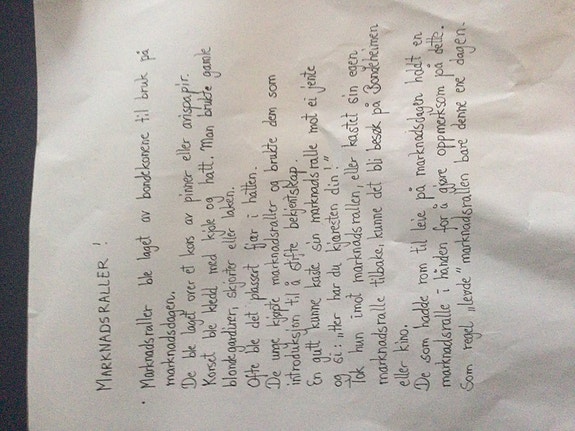 MARKNADSRALLER !
• Marknadsraller ble laget av bondekonene til bruk på
marknadsdagen.
De ble laget over et kors av pinner eller avispapir.
Korset ble kledd med kjole og hatt. Man brukte gamle
blondegardiner, skjorter eller laken.
Ofte ble det plassert fjær i hatten.
De unge kjøpte marknadsraller og brukte dem som
introduksjon til å stifte bekjentskap.
En gutt kunne kaste sin marknadsralle mot ei jente
og si: „Her har du kjæresten din!"
Tok hun imot marknadsrallen, eller kastet sin egen
marknadsralle tilbake, kunne det bli besøk på Bondeheimen
eller kino.
De som hadde rom til leie på marknadsdagen holdt en
marknadsralle i hånden for å gjøre oppmerksom på dette.
Som regel „levde" marknadsrallen bare denne ene dagen.